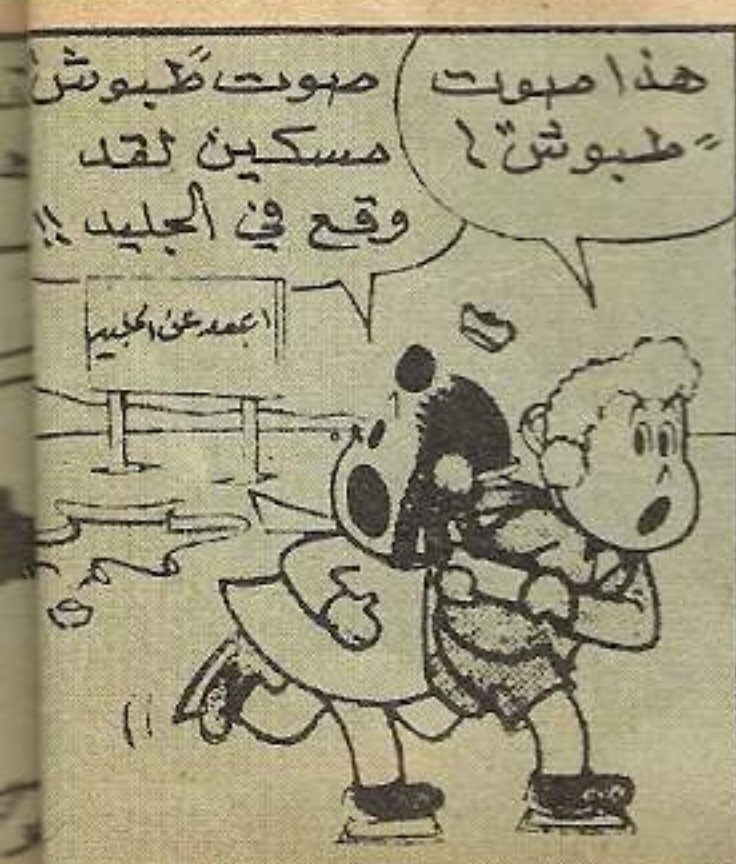 هذا صوت
"طبوش"!
صوت طبوش
مسكين لقد
وقع في الجليد !!
ابعد عن الجليد